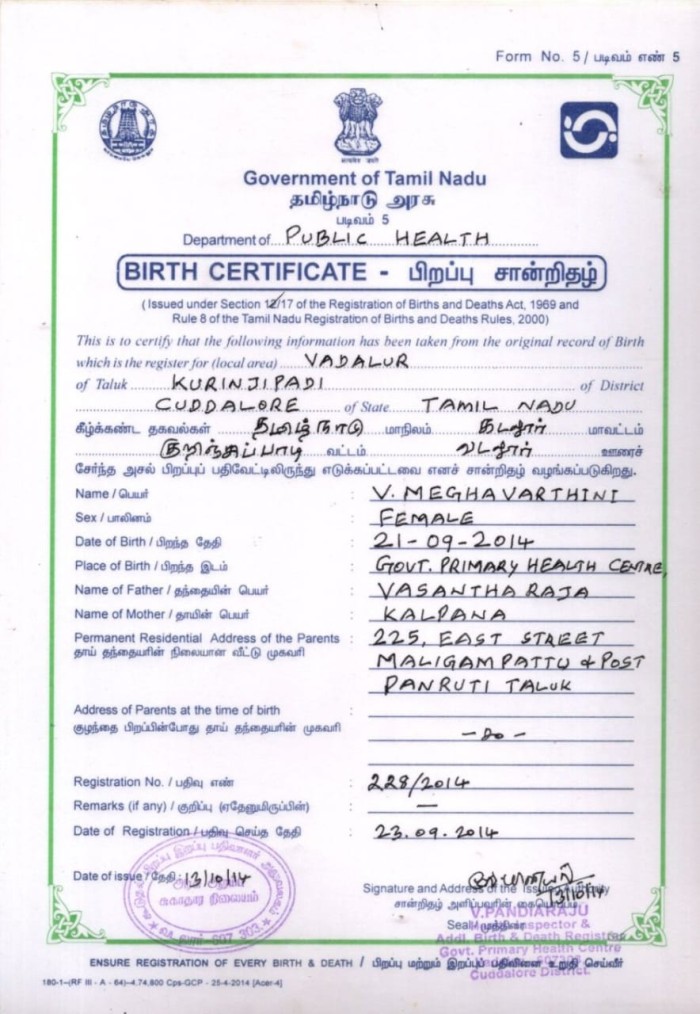 Form No. 5 / படிவம் எண் 5
Government of Tamil Nadu
தமிழ்நாடு அரசு
படிவம் 5
Department of PUBLIC HEALTH
BIRTH CERTIFICATE - பிறப்பு சான்றிதழ்
(Issued under Section 12/17 of the Registration of Births and Deaths Act, 1969 and
Rule 8 of the Tamil Nadu Registration of Births and Deaths Rules, 2000)
This is to certify that the following information has been taken from the original record of Birth
which is the register for (local area) VADALUR
of Taluk KURINJIPADI of District
CUDDALORE of State TAMIL NADU
கீழ்க்கண்ட தகவல்கள் தமிழ்நாடு மாநிலம் கடலூர் மாவட்டம்
குறிஞ்சிப்பாடி வட்டம் வடலூர் ஊரைச்
சேர்ந்த அசல் பிறப்புப் பதிவேட்டிலிருந்து எடுக்கப்பட்டவை எனச் சான்றிதழ் வழங்கப்படுகிறது.
Name / பெயர் : V. MEGHAVARTHINI
Sex / பாலினம் : FEMALE
Date of Birth / பிறந்த தேதி : 21-09-2014
Place of Birth / பிறந்த இடம் : GOVT. PRIMARY HEALTH CENTRE,
Name of Father / தந்தையின் பெயர் : VASANTHA RAJA
Name of Mother / தாயின் பெயர் : KALPANA
Permanent Residential Address of the Parents : 225, EAST STREET
தாய் தந்தையரின் நிலையான வீட்டு முகவரி MALIGAMPATTU & POST
PANRUTI TALUK
Address of Parents at the time of birth :
குழந்தை பிறப்பின்போது தாய் தந்தையரின் முகவரி - do -
Registration No. / பதிவு எண் : 228/2014
Remarks (if any) / குறிப்பு (ஏதேனுமிருப்பின்) : —
Date of Registration / பதிவு செய்த தேதி : 23.09.2014
Date of issue / தேதி : 13/10/14
சுகாதார நிலையம்
607 303
13/10/14
Signature and Address of the Issuing Authority
சான்றிதழ் அளிப்பவரின் கையொப்பம்
Seal / முத்திரை
V.PANDIARAJU
Inspector &
Addl. Birth & Death Registrar
Govt. Primary Health Centre
Cuddalore District.
ENSURE REGISTRATION OF EVERY BIRTH & DEATH / பிறப்பு மற்றும் இறப்புப் பதிவினை உறுதி செய்வீர்
180-1-(RF III - A - 64)-4,74,800 Cps-GCP - 25-4-2014 [Acer-4]